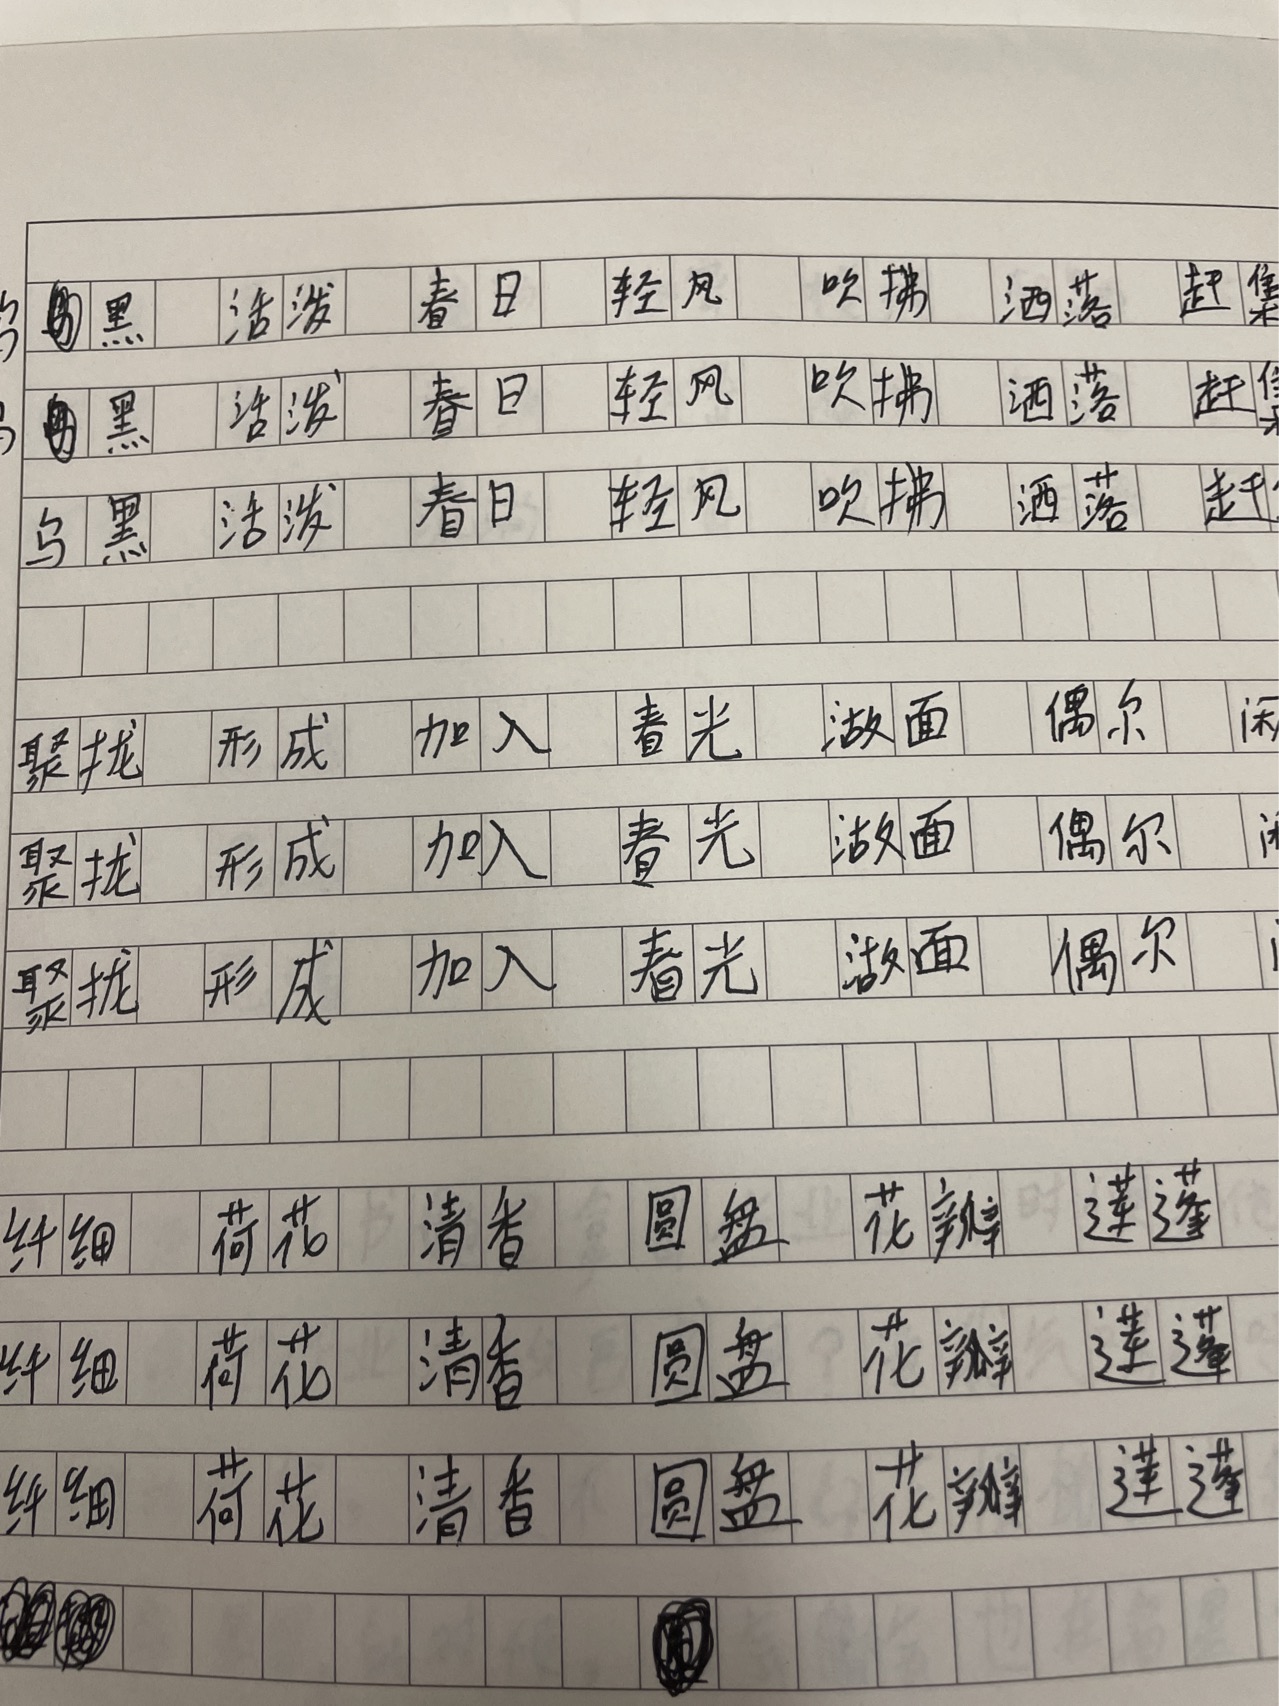 乌黑 活泼 春日 轻风 吹拂 洒落 赶集
乌黑 活泼 春日 轻风 吹拂 洒落 赶集
乌黑 活泼 春日 轻风 吹拂 洒落 赶
聚拢 形成 加入 春光 湖面 偶尔 闲
聚拢 形成 加入 春光 湖面 偶尔
聚拢 形成 加入 春光 湖面 偶尔
纤细 荷花 清香 圆盘 花瓣 莲蓬
纤细 荷花 清香 圆盘 花瓣 莲蓬
纤细 荷花 清香 圆盘 花瓣 莲蓬